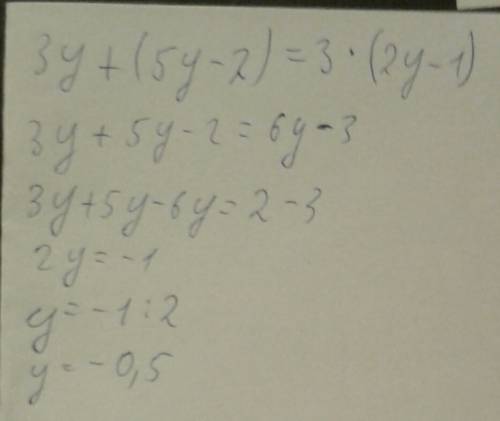 3y + (5y - 2) = 3 · (2y - 1)
3y + 5y - 2 = 6y - 3
3y + 5y - 6y = 2 - 3
2y = -1
y = -1 : 2
y = -0,5